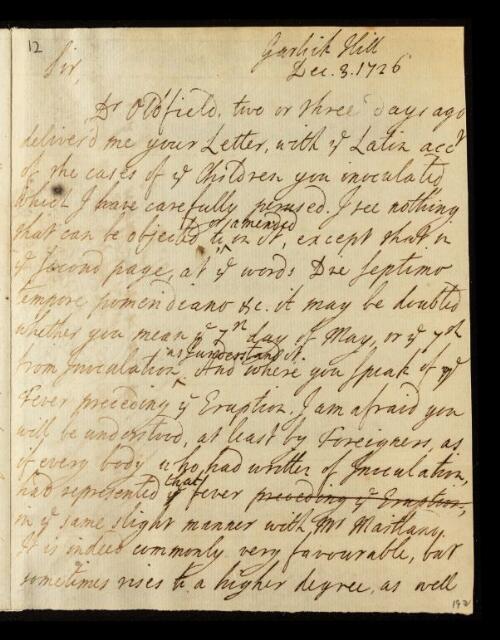 12
Garlick Hill
Dec. 3. 1726
Sir,
Dr Oldfield, two or three days ago
deliver'd me your Letter, with ye Latin acct
of the cases of ye Children you inoculated
which I have carefully perused. I see nothing
or amended
that can be objected to in it, except that in
ye second page, at ye words Die septimo
tempore pomeridiano &c. it may be doubted
whether you mean ye 7th day of May, or ye 7th
as I understand it.
from Inoculation, And where you speak of ye
Fever preceding ye Eruption. I am afraid you
will be understood, at least by Foreigners, as
if every body who had written of Inoculation,
that
had represented ye fever preceding ye Eruption,
in ye same slight manner with Mr Maitland.
It is indeed commonly very favourable, but
sometimes rises to a higher degree, as well
192